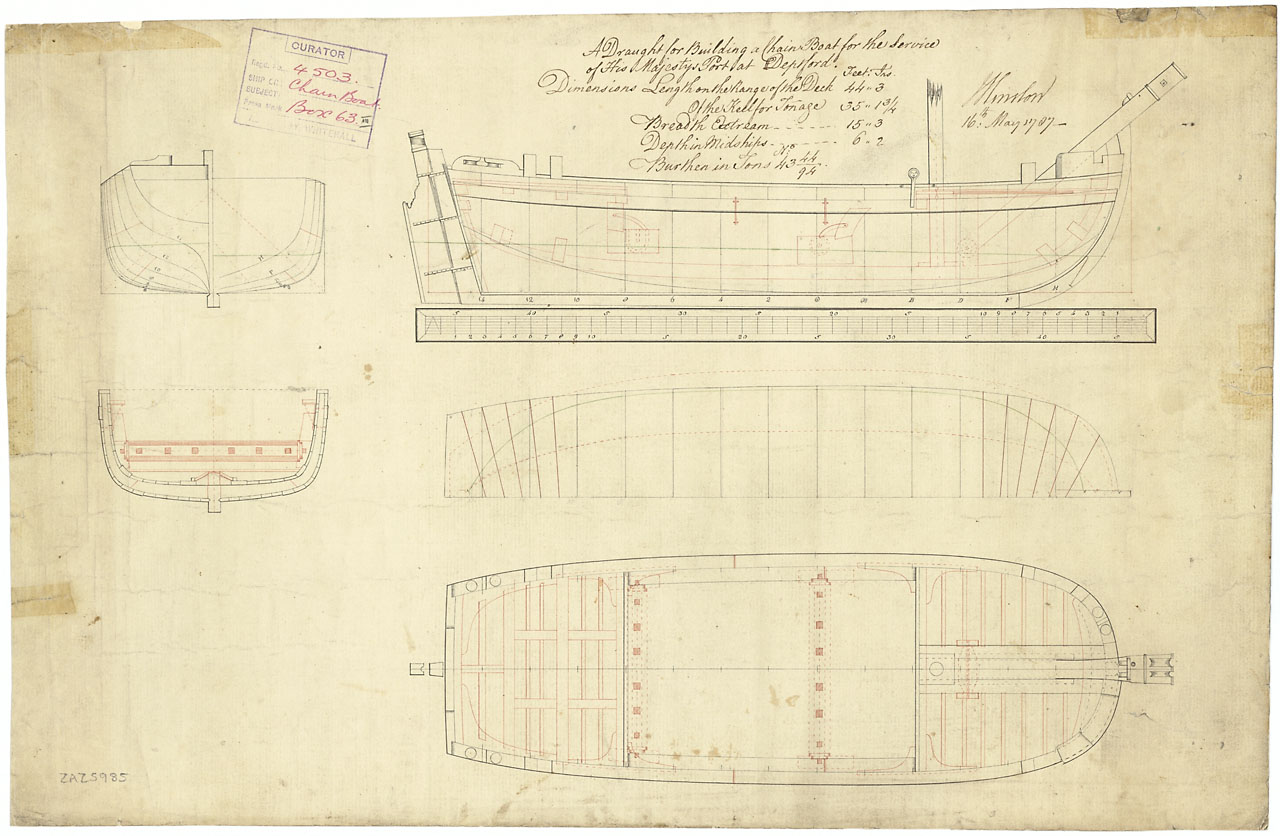 CURATOR
Regd. No. 4503.
SHIP CL. Chain Boat.
SUBJECT:
Box 63.
WHITEHALL
A Draught for Building a Chain Boat for the Service
of His Majestys Port at Deptford.
Feet. Ins.
Dimensions Length on the Range of the Deck 44 " 3
Of the Keel for Tonage 35 " 1 3/4
Breadth Extream 15 " 3
Depth in Midships 6 " 2
Burthen in Tons No 43 44/94
JHenslow
16th May 1787
14 12 10 8 6 4 2 B D F H
5 40 5 30 5 20 5 10 9 8 7 6 5 4 3 2 1
1 2 3 4 5 6 7 8 9 10 5 20 5 30 5 40 5
ZAZ5985